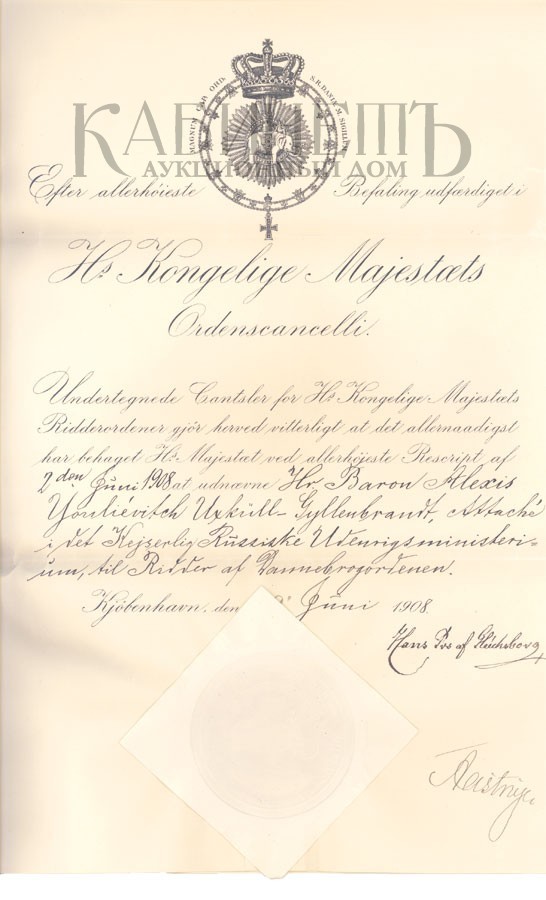 КАБИНЕТЪ
АУКЦИОННЫЙ ДОМ
Efter allerhöieste Befaling udfærdiget i
Hs Kongelige Majestæts
Ordenscancelli.
Undertegnede Cantsler for Hs Kongelige Majestæts
Ridderordener gjör herved vitterligt at det allernaadigst
har behaget Hs Majestæt ved allerhöjeste Rescript af
2den Juni 1908 at udnævne Hr. Baron Alexis
Youliévitch Uxküll-Gyllenbrandt, Attaché
i det Kejserlig Russiske Udenrigsministeri-
um, til Ridder af Dannebrogordenen.
Kjöbenhavn, den Juni 1908
Hans Prs af Glücksborg